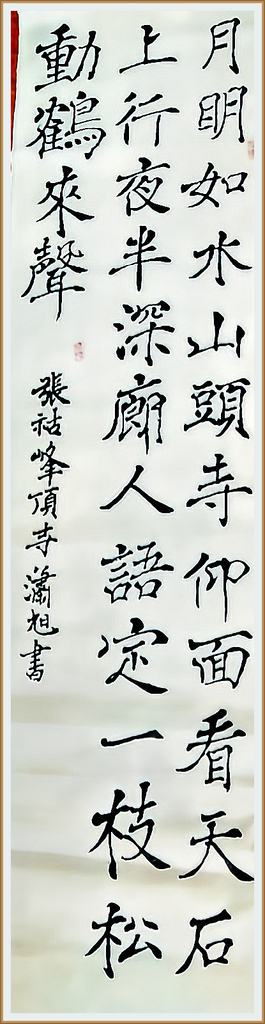 月明如水山頭寺仰面看天石
上行夜半深廊人語定一枝松
動鶴來聲
張祜峰頂寺瀟旭書